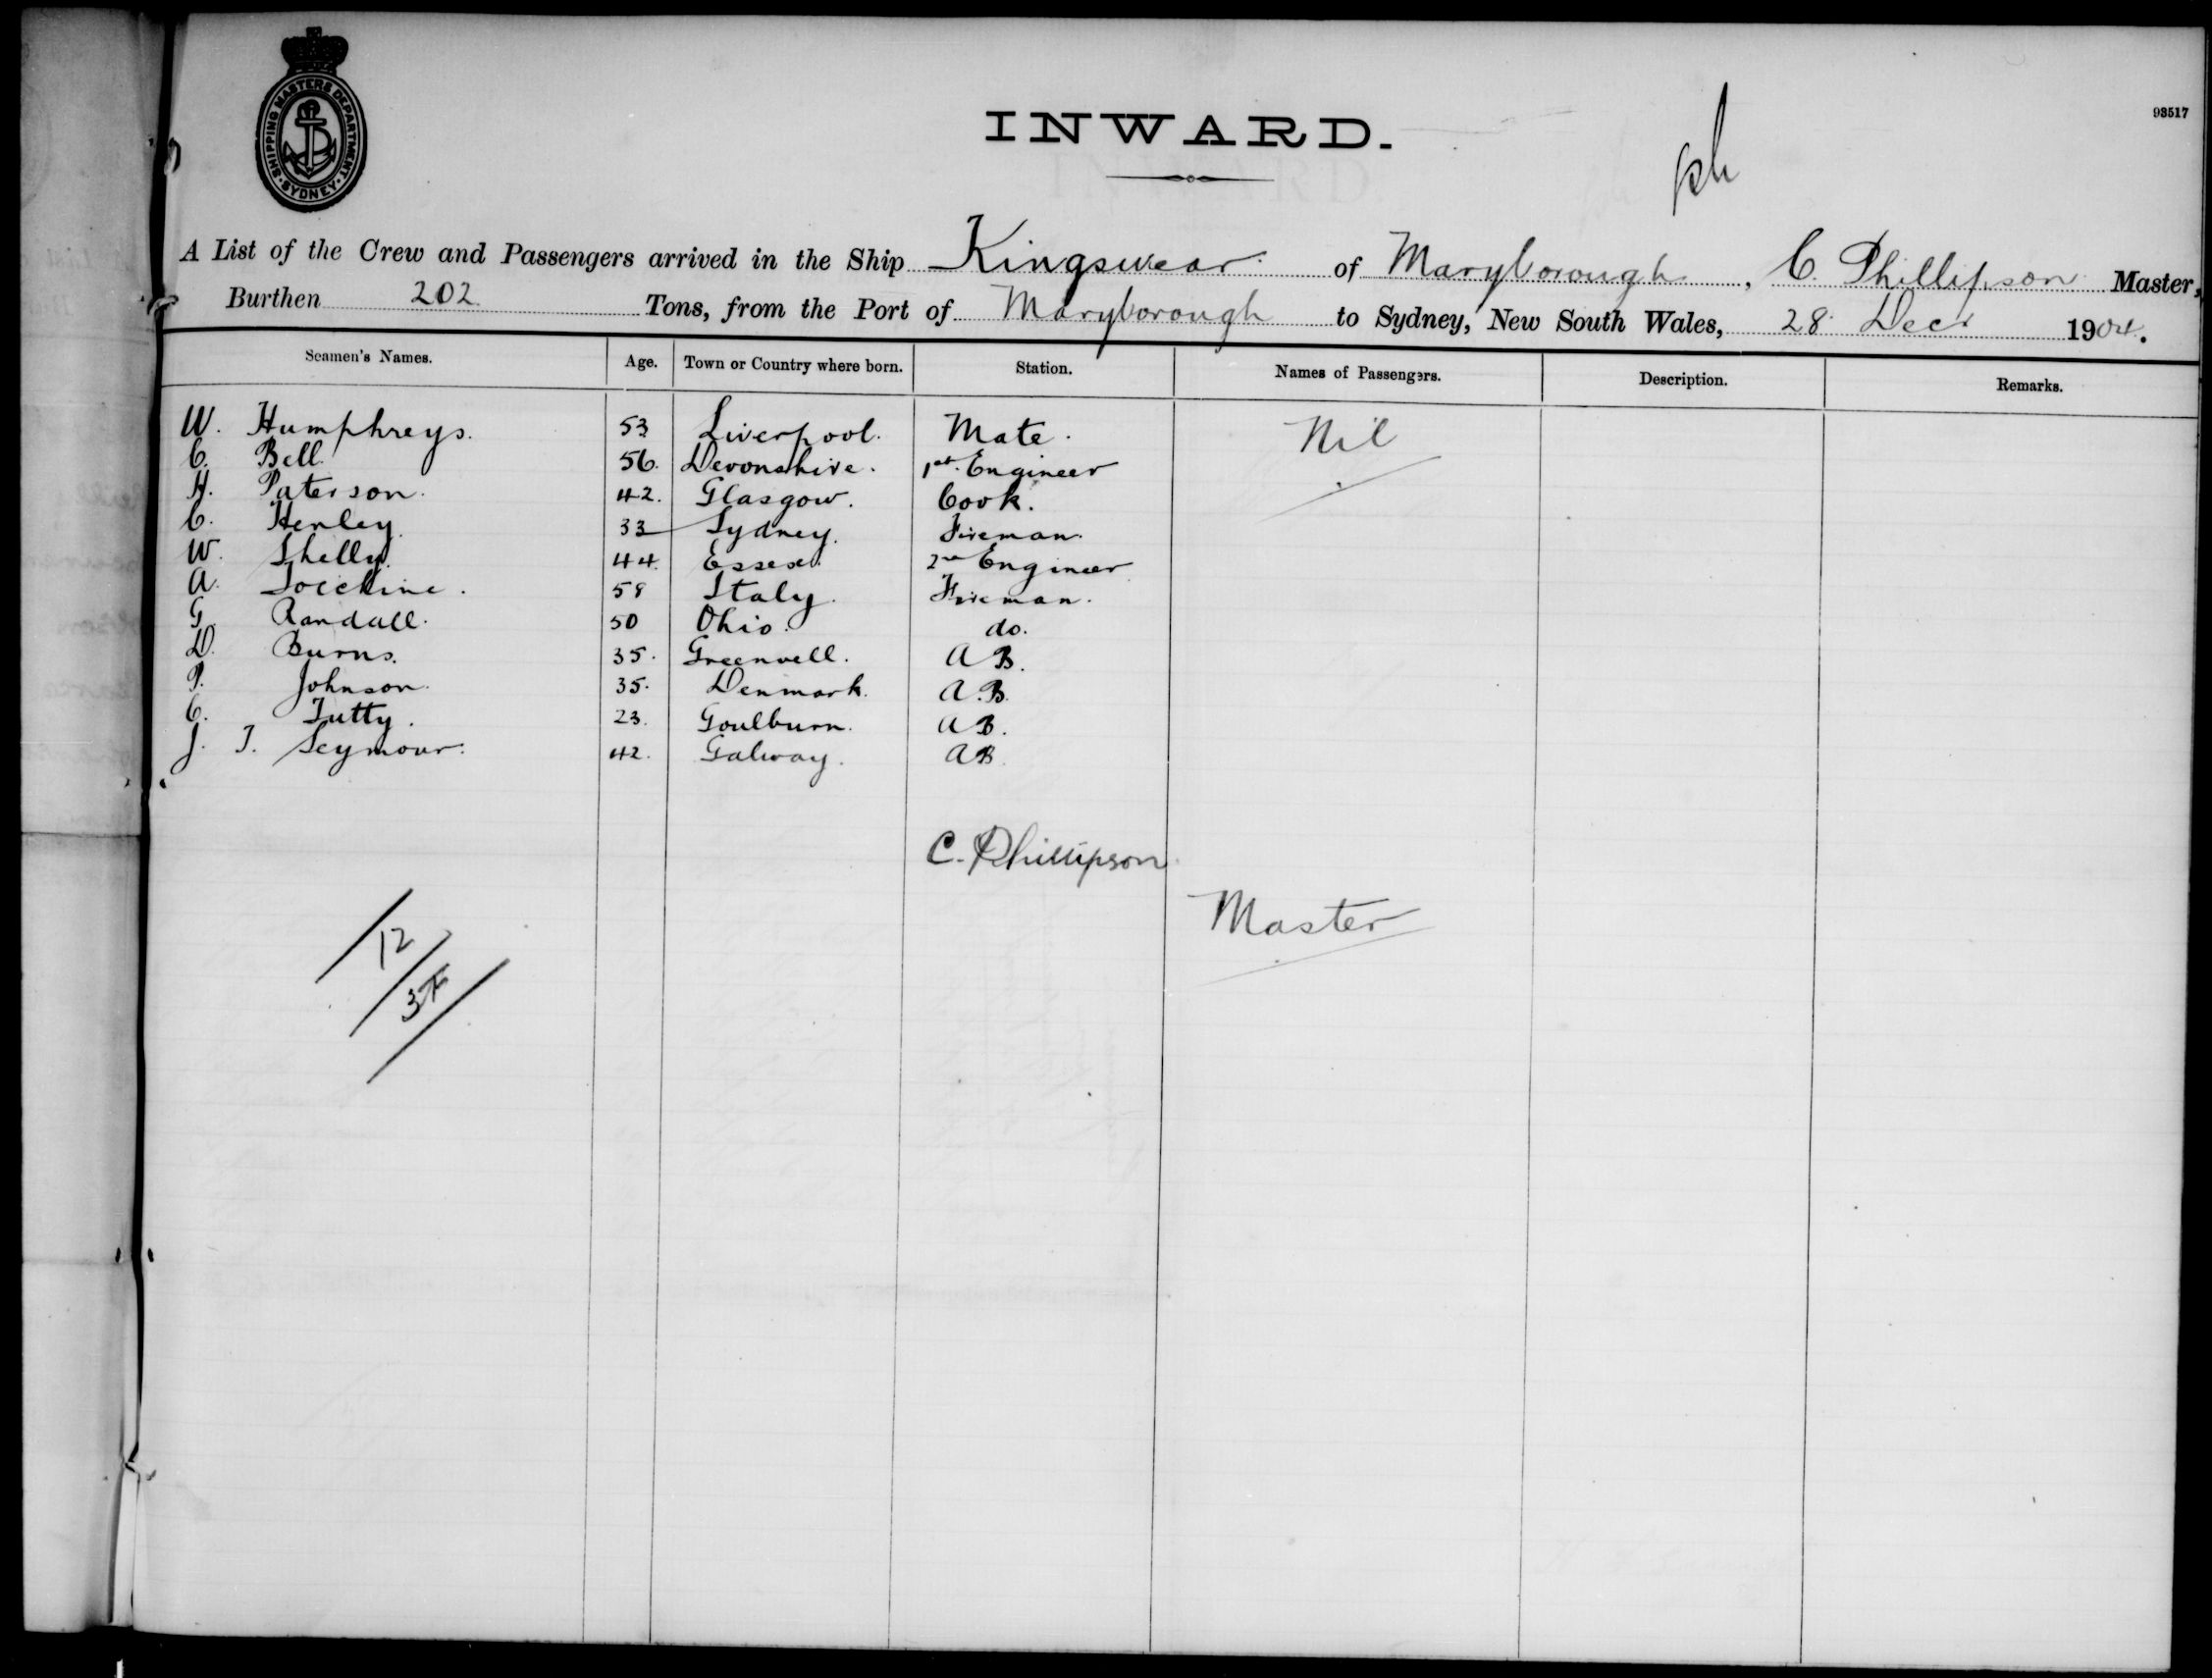 SHIPPING MASTERS DEPARTMENT · SYDNEY ·
INWARD.
98517
A List of the Crew and Passengers arrived in the Ship Kingswear of Maryborough, C. Phillipson Master,
Burthen 202 Tons, from the Port of Maryborough to Sydney, New South Wales, 28 Decr 1904.
Seamen's Names. Age. Town or Country where born. Station. Names of Passengers. Description. Remarks.
W. Humphreys. 53 Liverpool. Mate. Nil
C. Bell. 56. Devonshire. 1st Engineer
H. Paterson. 42. Glasgow. Cook.
C. Henley 33 Sydney. Fireman.
W. Shelly. 44. Essex. 2nd Engineer
A. 58 Italy. Fireman.
G. Randall. 50 Ohio. do.
D. Burns. 35. Greenvell. AB.
P. Johnson. 35. Denmark. A.B.
C. Tutty. 23. Goulburn. AB.
J. T. Seymour. 42. Galway. AB
C. Phillipson
Master
12